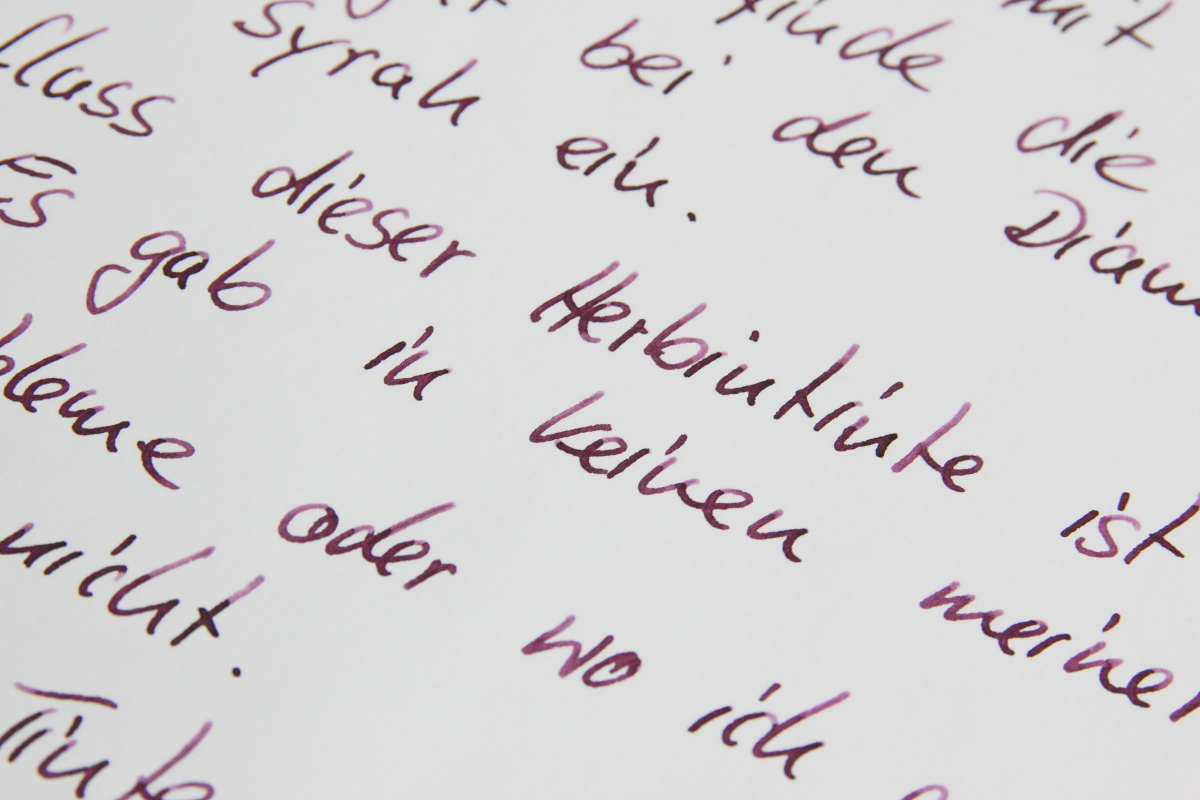 mit
finde die
bei den Diam
Syrah ein.
fluss dieser Herbintinte ist
Es gab in keinen meiner
bleme oder wo ich
nicht.
Tinte